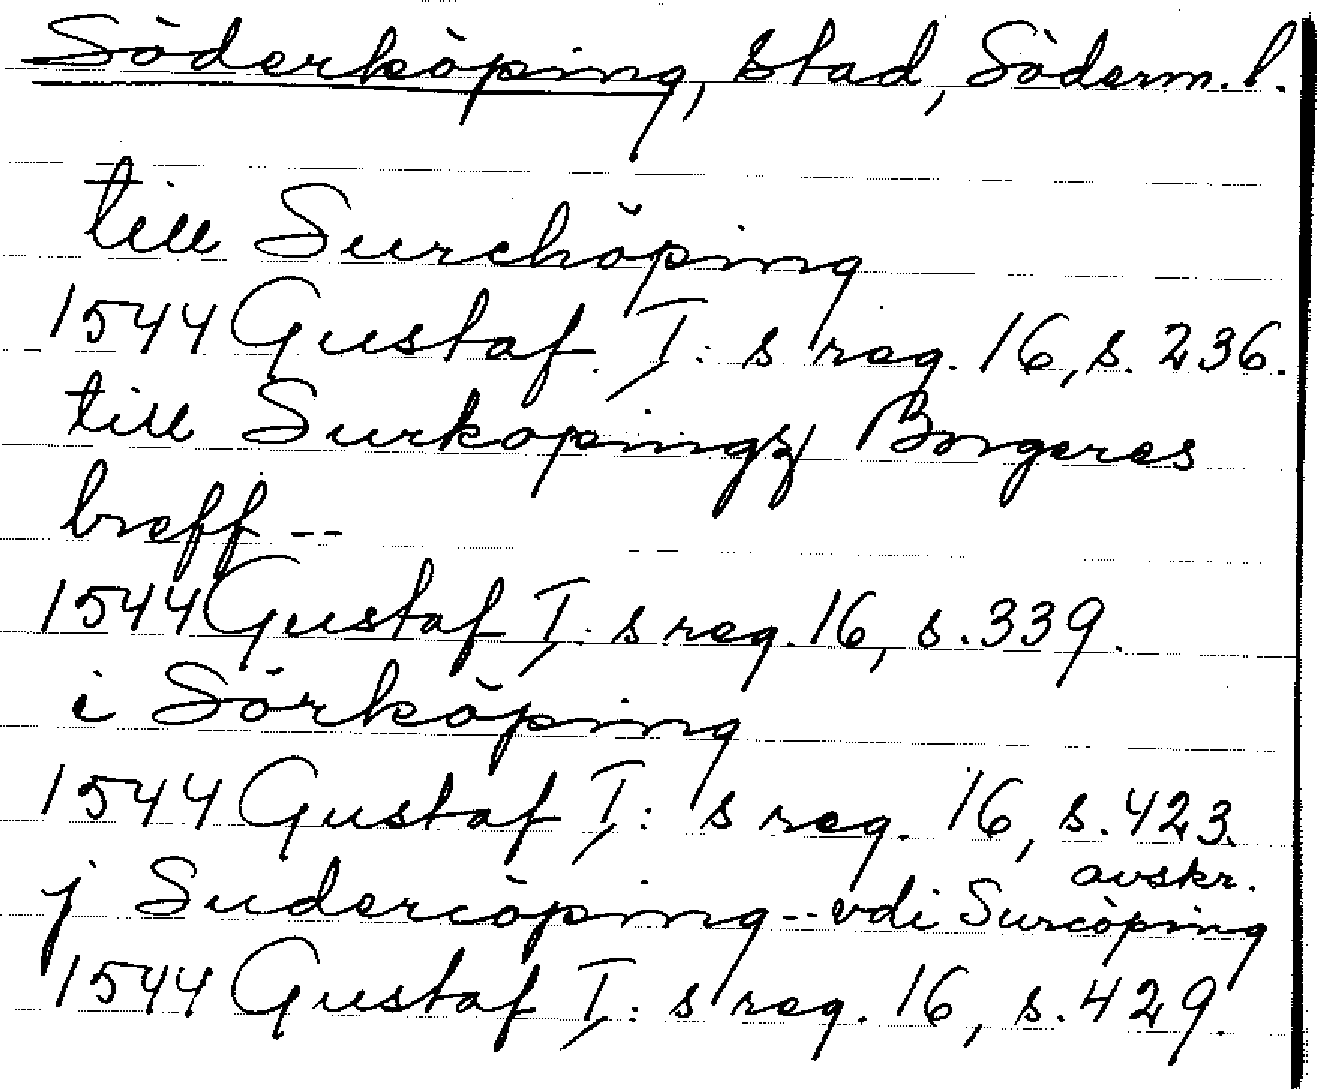 Söderköping, stad, Söderm. l.
till Surchöping
1544 Gustaf I: s reg. 16, s. 236.
till Surkopingz Borgeres
breff --
1544 Gustaf I: s reg. 16, s. 339.
i Sörköping
1544 Gustaf I: s reg. 16, s. 423.
avskr.
j Sudercöping -- vdi Surcöping
1544 Gustaf I: s reg. 16, s. 429.